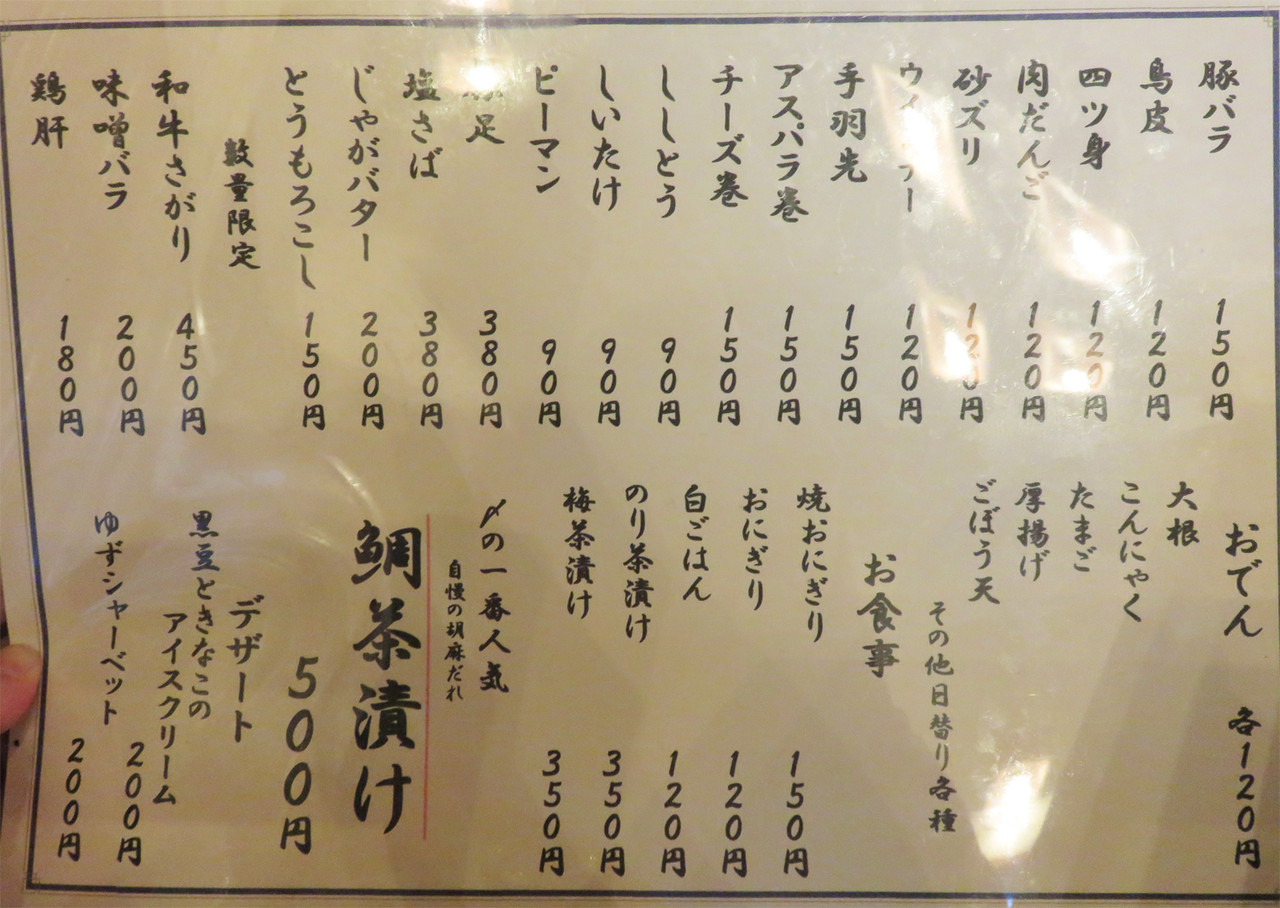 豚バラ 150円
鳥皮 120円
四ツ身 120円
肉だんご 120円
砂ズリ 120円
ウインナー 120円
手羽先 150円
アスパラ巻 150円
チーズ巻 150円
ししとう 90円
しいたけ 90円
ピーマン 90円
豚足 380円
塩さば 380円
じゃがバター 200円
とうもろこし 150円
数量限定
和牛さがり 450円
味噌バラ 200円
鶏肝 180円
おでん 各120円
大根
こんにゃく
たまご
厚揚げ
ごぼう天
その他日替り各種
お食事
焼おにぎり 150円
おにぎり 120円
白ごはん 120円
のり茶漬け 350円
梅茶漬け 350円
〆の一番人気
自慢の胡麻だれ
鯛茶漬け
500円
デザート
黒豆ときなこの
アイスクリーム 200円
ゆずシャーベット 200円